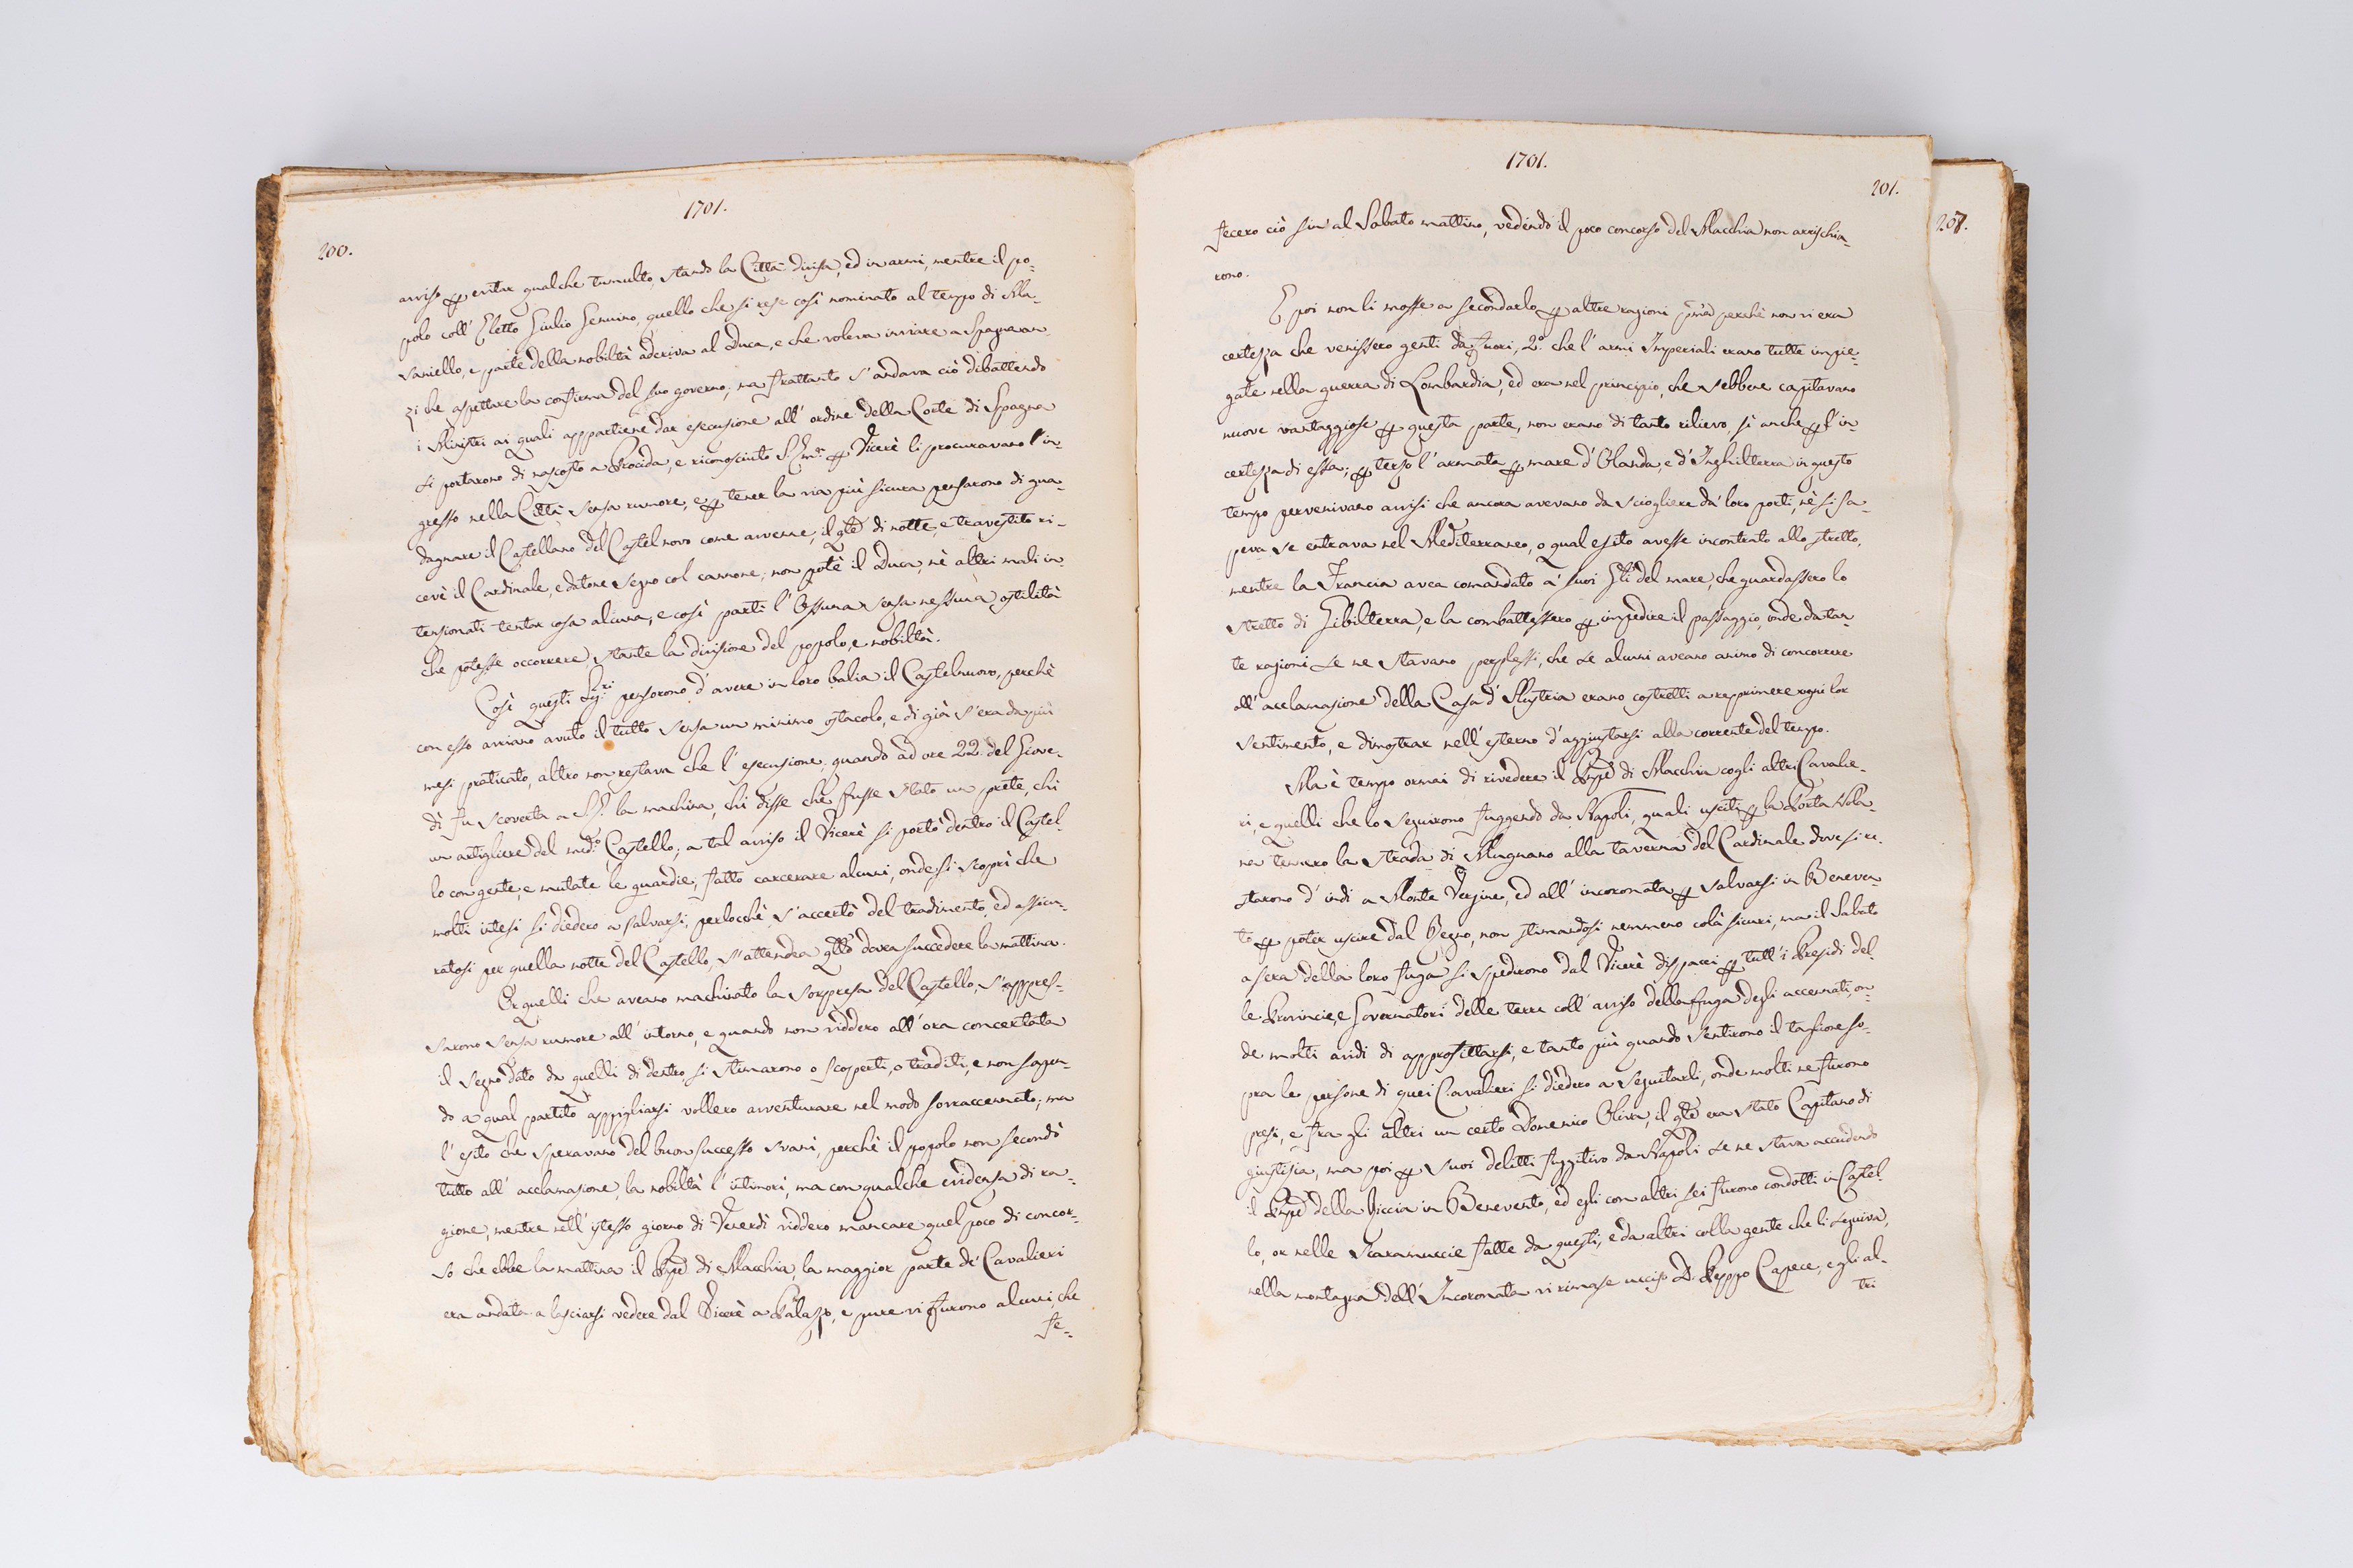 1701.
200.
avviso p evitar qualche tumulto, stando la Città divisa, ed in armi, mentre il po-
polo coll' Eletto Giulio Genuino, quello che si rese così nominato al tempo di Ma-
saniello, e parte della nobiltà aderiva al Duca, e che voleva inviare a Spagna an-
zi che aspettare la conferma del suo governo; ma frattanto s'andava ciò dibattendo
i Ministri ai quali appartiene dar esecuzione all' ordine della Corte di Spagna
si portarono di nascosto a Procida, e riconosciuto p Vicerè li procuravano l'in-
gresso nella Città senza rumore, e p tener la via più sicura pensarono di gua-
dagnare il Castellano del Castelnovo come avvenne, il qle di notte, e travestito ri-
cevè il Cardinale, e datone segno col cannone; non potè il Duca, nè altri mali in-
tenzionati tentar cosa alcuna, e così partì l' Ossuna senza nessuna ostilità
che potesse occorrere, stante la divisione del popolo, e nobiltà.
Così questi Sig.ri pensorono d' avere in loro balia il Castelnuovo, perchè
con esso avriano avuto il tutto senza un minimo ostacolo, e di già s'era da più
mesi praticato, altro non restava che l' esecuzione, quando ad ore 22. del Giove-
dì fu scoverta a S.E. la machina, chi disse che fusse stato un prete, chi
un artigliere del med.o Castello; a tal avviso il Vicerè si portò dentro il Castel-
lo con gente, e mutate le guardie, fatto carcerare alcuni, onde si scoprì che
molti intesi si diedero a salvarsi, perlocchè s'accertò del tradimento, ed assicu-
ratosi per quella notte del Castello, s'attendea qto dovea succedere la mattina.
Or quelli che aveano machinato la sorpresa del Castello, s'appres-
sarono senza rumore all' intorno, e quando non viddero all' ora concertata
il segno dato da quelli di dentro, si stimarono o scoperti, o traditi, e non sapen-
do a qual partito appigliarsi vollero avventurare nel modo sovraccennato; ma
l' esito che speravano del buon successo svanì, perchè il popolo non secondò
tutto all' acclamazione, la nobiltà l' intimorì, ma con qualche evidenza di ra-
gione, mentre nell' istesso giorno di Venerdì viddero mancare quel poco di concor-
so che ebbe la mattina il Prpe di Macchia, la maggior parte de' Cavalieri
era andata a lasciarsi vedere dal Vicerè a Palazzo, e pure vi furono alcuni, che
fe-
1701.
201.
207.
fecero ciò sin' al Sabato mattino, vedendo il poco concorso del Macchia non arrischia-
rono.
E poi non li mosse a secondarlo p altre ragioni pma perchè non vi era
certezza che venissero genti da fuori, 2.o che l' armi Imperiali erano tutte impie-
gate nella guerra di Lombardia, ed era nel principio, che sebbene capitavano
nuove vantaggiose p questa parte, non erano di tanto rilievo, sì anche p l' in-
certezza di essa; p terzo l' armata p mare d' Olanda, e d' Inghilterra in questo
tempo pervenivano avvisi che ancora avevano da sciogliere da' loro porti, nè si sa-
peva se entrava nel Mediterraneo, o qual esito avesse incontrato allo stretto,
mentre la Francia avea comandato a' suoi Gli del mare, che guardassero lo
stretto di Gibilterra, e la combattessero p impedire il passaggio, onde da tan-
te ragioni se ne stavano perplessi, che se alcuni aveano animo di concorrere
all' acclamazione della Casa d' Austria erano costretti a reprimere ogni lor
sentimento, e dimostrar nell' esterno d' aggiustarsi alla corrente del tempo.
Ma è tempo ormai di rivedere il Prpe di Macchia cogli altri Cavalie-
ri, e quelli che lo seguirono fuggendo da Napoli, quali usciti p la Porta Nola-
na tennero la strada di Mugnano alla taverna del Cardinale dove si re-
starono d' indi a Monte Vergine, ed all' incoronata p salvarsi in Beneven-
to p poter uscire dal Regno, non stimandosi nemmeno colà sicuri, ma il Sabato
a sera della loro fuga si spedirono dal Vicerè dispacci p tutt' i Presidi del-
le Provincie, e Governatori delle terre coll' avviso della fuga degli accennati, on-
de molti avidi di approfittarsi, e tanto più quando sentirono il taglione so-
pra le persone di quei Cavalieri si diedero a seguitarli, onde molti ne furono
presi, e fra gli altri un certo Domenico Oliva, il qle era stato Capitano di
giustizia, ma poi p suoi delitti fuggitivo da Napoli se ne stava accudendo
il Prpe della Riccia in Benevento, ed egli con altri sei furono condotti in Castel-
lo, or nelle scaramuccie fatte da questi, e da altri colla gente che li seguiva,
nella montagna dell' Incoronata vi rimase ucciso D. Peppo Capece, e gli al-
tri